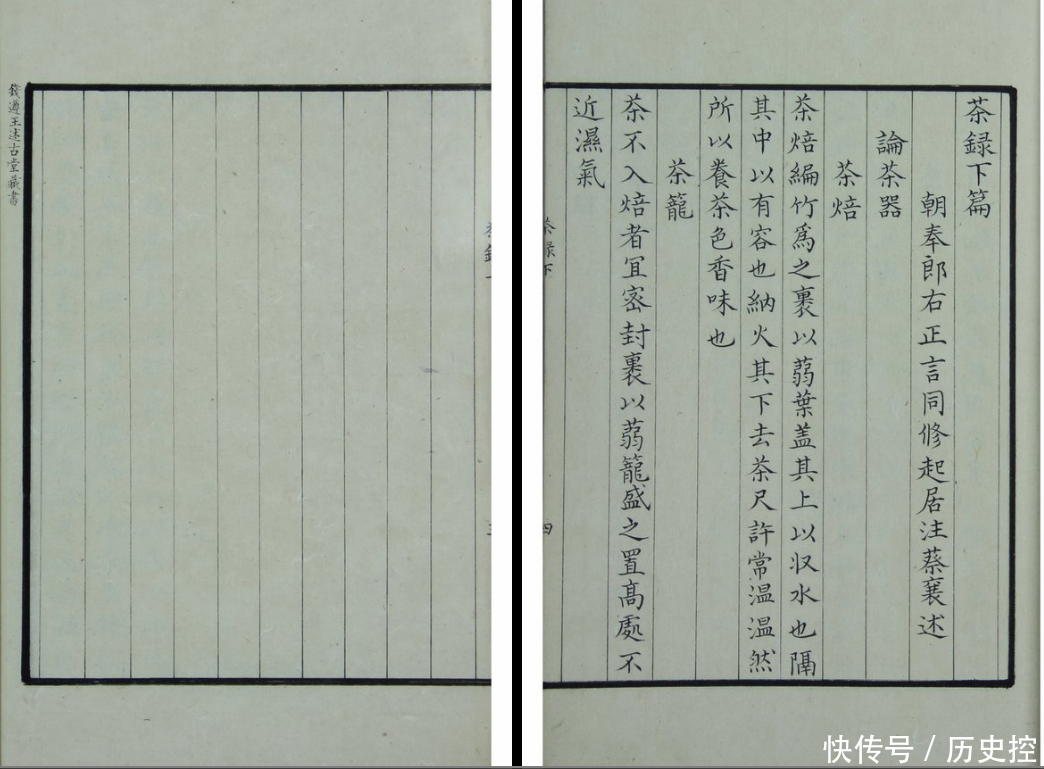 茶録下篇
朝奉郎右正言同修起居注蔡襄述
論茶器
茶焙
茶焙編竹爲之裹以蒻葉盖其上以収水也隔
其中以有容也納火其下去茶尺許常温温然
所以養茶色香味也
茶籠
茶不入焙者宜宻封裹以蒻籠盛之置髙處不
近濕氣
茶録下
四
錢遵王述古堂藏書
快传号 / 历史控